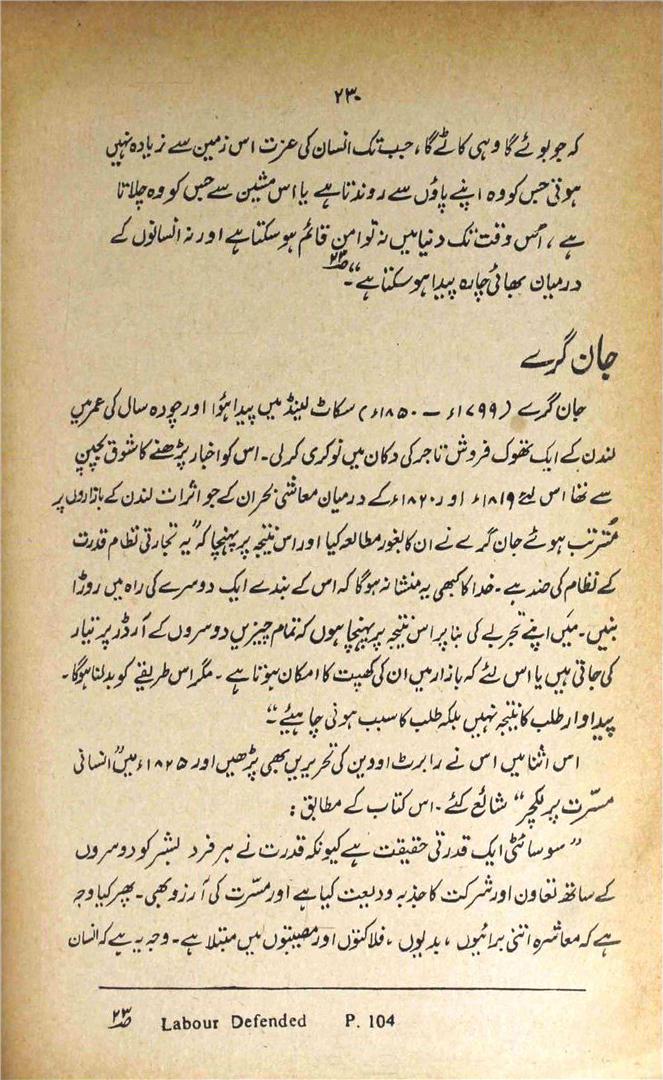 ۲۳۰
کہ جو بوئے گا وہی کاٹے گا، جب تک انسان کی عزت اس زمین سے زیادہ نہیں
ہوتی جس کو وہ اپنے پاؤں سے روندتا ہے یا اس مشین سے جس کو وہ چلاتا
ہے، اُس وقت تک دنیا میں نہ تو امن قائم ہو سکتا ہے اور نہ انسانوں کے
درمیان بھائی چارہ پیدا ہو سکتا ہے"۔ ۲۳؎
جان گرے
جان گرے (۱۷۹۹ء – ۱۸۵۰ء) سکاٹ لینڈ میں پیدا ہؤا اور چودہ سال کی عمر میں
لندن کے ایک تھوک فروش تاجر کی دکان میں نوکری کر لی۔ اس کو اخبار پڑھنے کا شوق بچپن
سے تھا اس لیے ۱۸۱۹ء اور ۱۸۲۰ء کے درمیان معاشی بحران کے جو اثرات لندن کے بازاروں پر
مُترتب ہوئے جان گرے نے ان کا بغور مطالعہ کیا اور اس نتیجہ پر پہنچا کہ "یہ تجارتی نظام قدرت
کے نظام کی ضد ہے۔ خدا کا کبھی یہ منشا نہ ہوگا کہ اس کے بندے ایک دوسرے کی راہ میں روڑا
بنیں۔ میں اپنے تجربے کی بنا پر اس نتیجہ پر پہنچا ہوں کہ تمام چیزیں دوسروں کے آرڈر پر تیار
کی جاتی ہیں یا اس لئے کہ بازار میں ان کی کھپت کا امکان ہوتا ہے۔ مگر اس طریقے کو بدلنا ہوگا۔
پیداوار طلب کا نتیجہ نہیں بلکہ طلب کا سبب ہونی چاہیئے"۔
اس اثنا میں اس نے رابرٹ اووین کی تحریریں بھی پڑھیں اور ۱۸۲۵ء میں "انسانی
مسرّت پر لکچر" شائع کئے۔ اس کتاب کے مطابق:
"سوسائٹی ایک قدرتی حقیقت ہے کیونکہ قدرت نے ہر فرد بشر کو دوسروں
کے ساتھ تعاون اور شرکت کا جذبہ ودیعت کیا ہے اور مسرّت کی آرزو بھی۔ پھر کیا وجہ
ہے کہ معاشرہ اتنی برائیوں، بدیوں، فلاکتوں اور مصیبتوں میں مبتلا ہے۔ وجہ یہ ہے کہ انسان
۲۳؎ Labour Defended P. 104